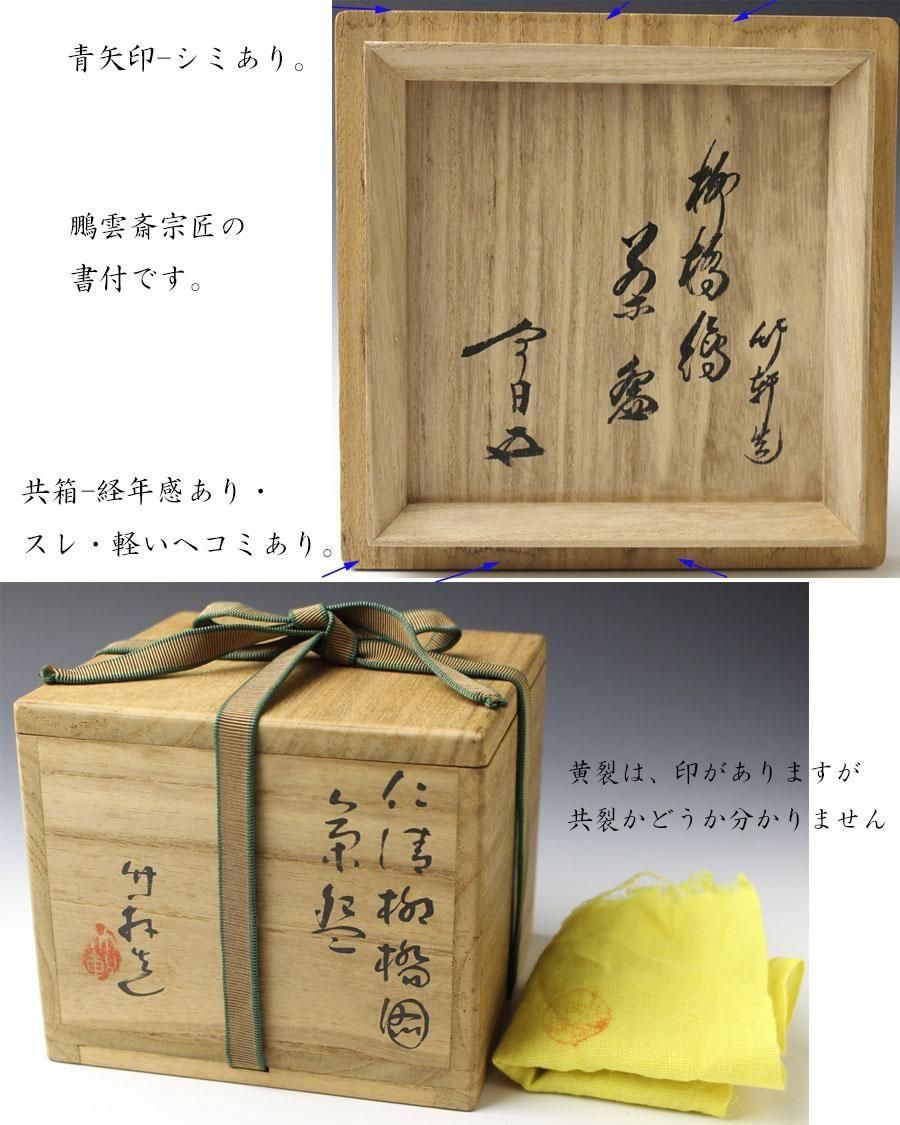 青矢印-シミあり。
鵬雲斎宗匠の
書付です。
共箱-経年感あり・
スレ・軽いヘコミあり。
竹軒造
柳橋絵
茶盌
今日庵
黄裂は、印がありますが
共裂かどうか分かりません
仁清柳橋図
茶盌
竹軒造